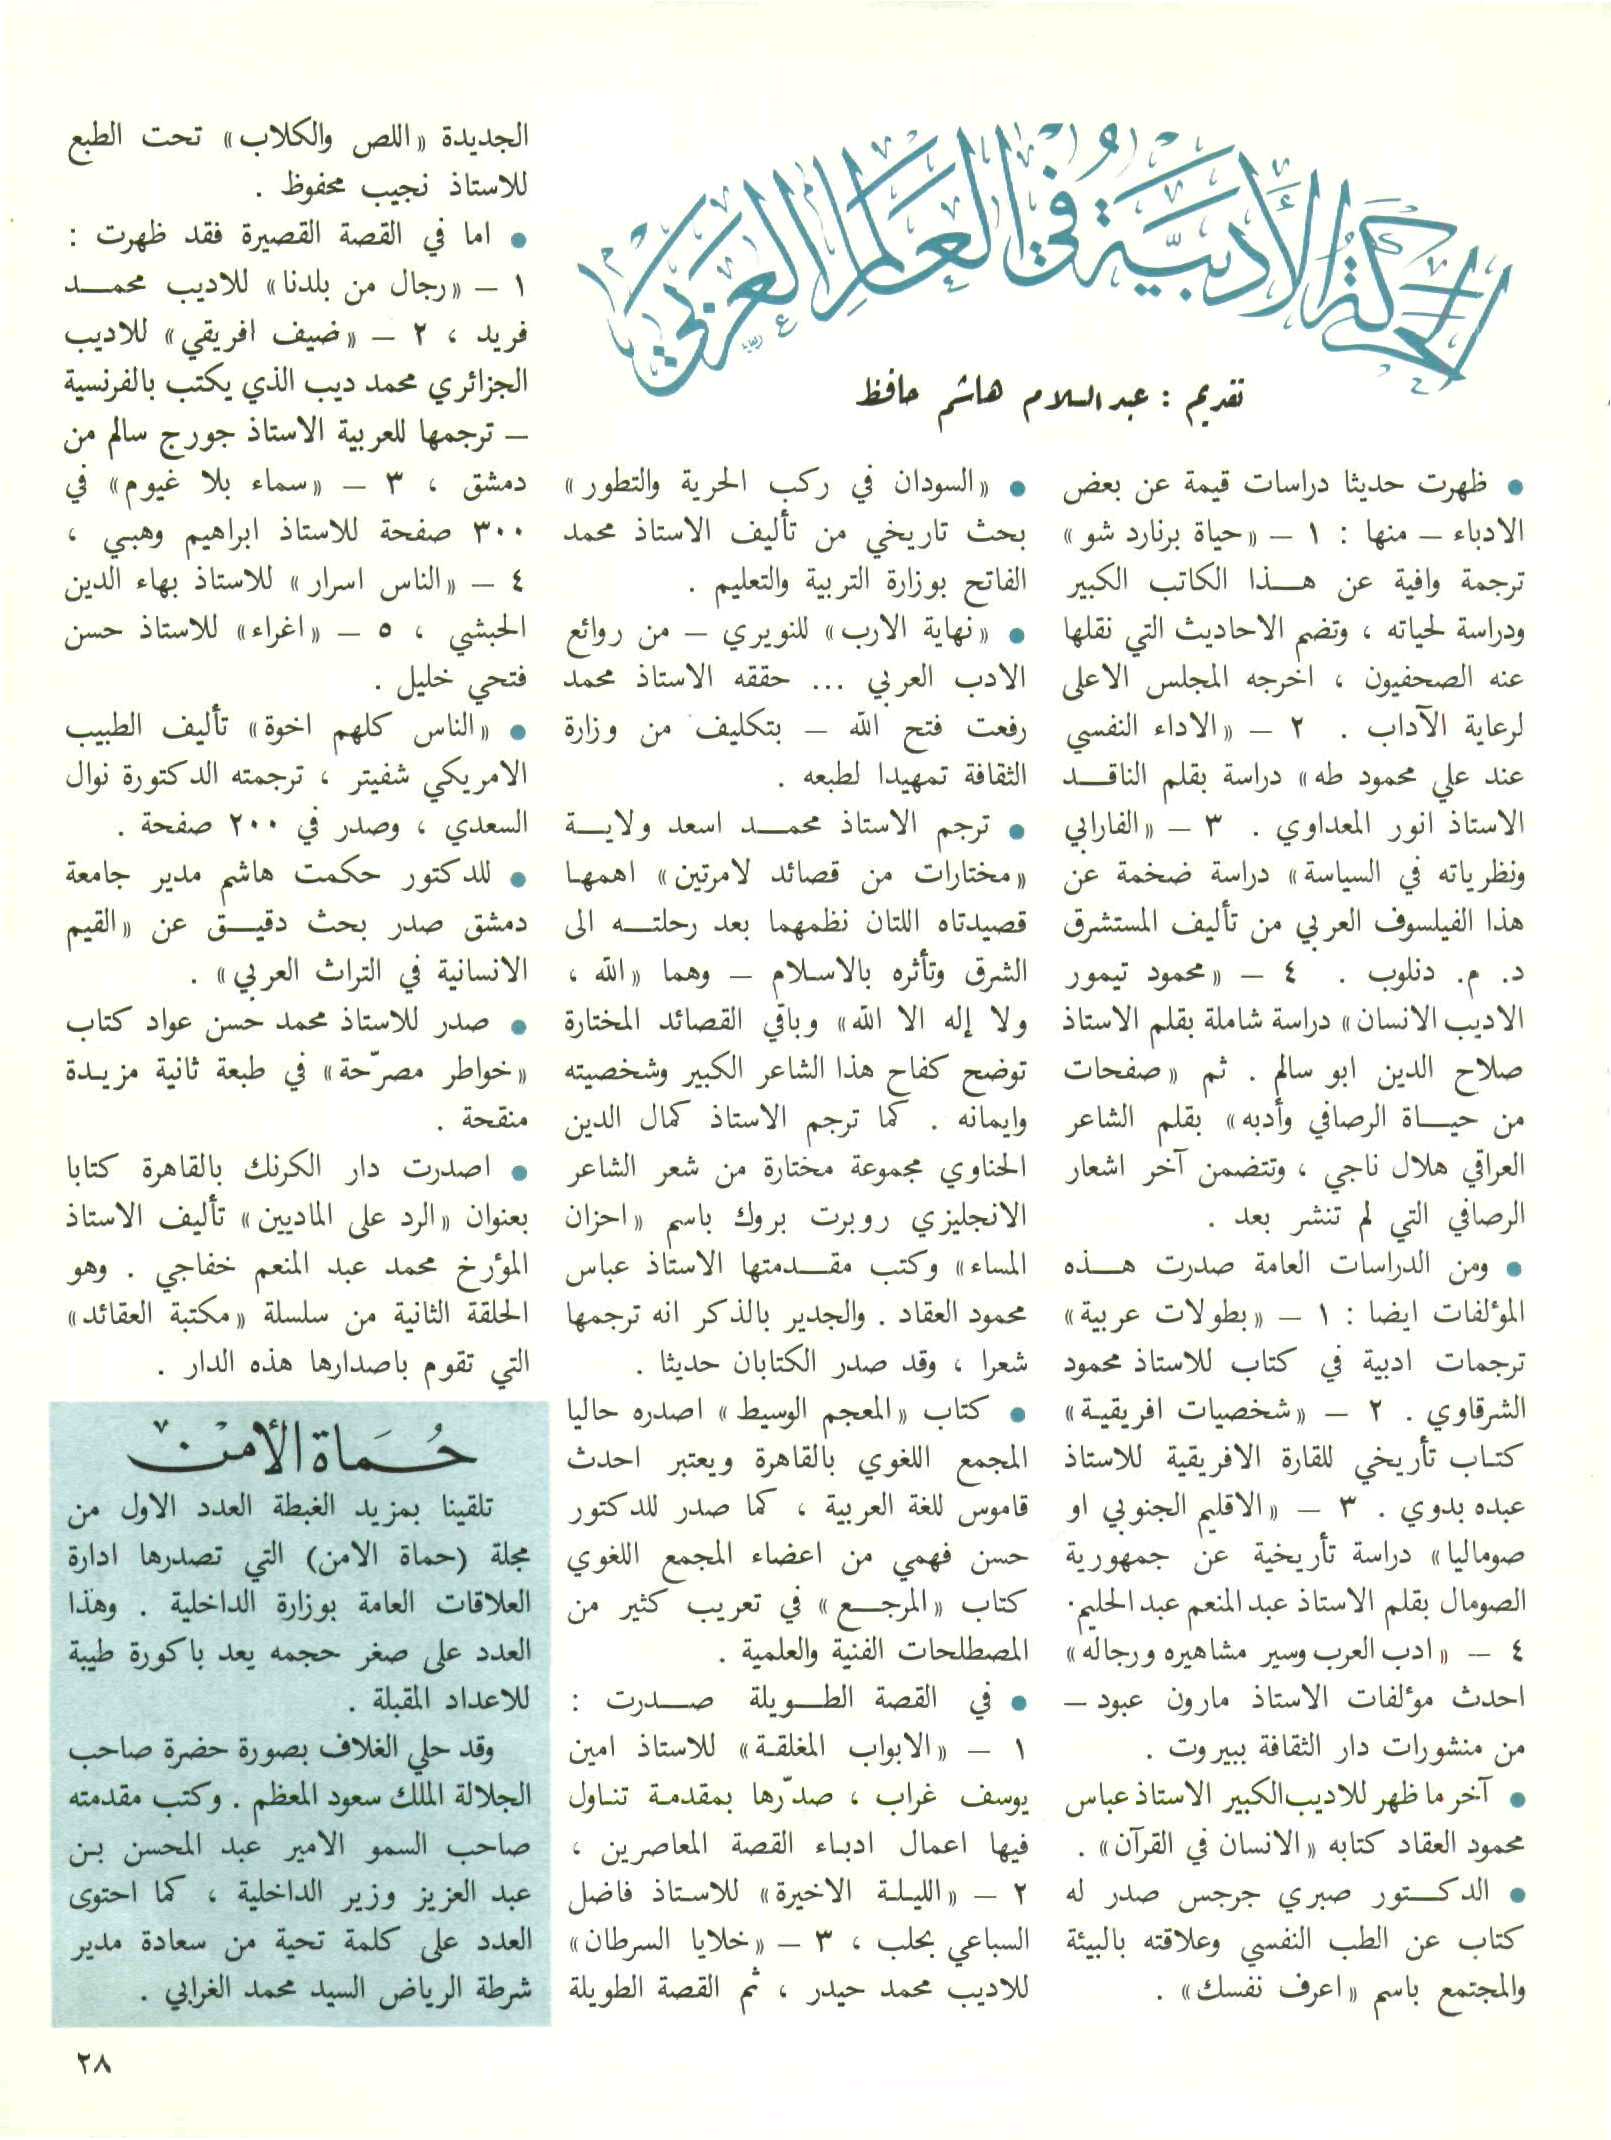 الحركة الأدبية في العالم العربي
تقديم : عبد السلام هاشم حافظ
● ظهرت حديثا دراسات قيمة عن بعض
الادباء – منها : ١ – «حياة برنارد شو»
ترجمة وافية عن هـذا الكاتب الكبير
ودراسة لحياته ، وتضم الاحاديث التي نقلها
عنه الصحفيون ، اخرجه المجلس الاعلى
لرعاية الآداب . ٢ – «الاداء النفسي
عند علي محمود طه» دراسة بقلم الناقـد
الاستاذ انور المعداوي . ٣ – «الفارابي
ونظرياته في السياسة» دراسة ضخمة عن
هذا الفيلسوف العربي من تأليف المستشرق
د. م. دنلوب . ٤ – «محمود تيمور
الاديب الانسان» دراسة شاملة بقلم الاستاذ
صلاح الدين ابو سالم . ثم «صفحات
من حيـاة الرصافي وأدبه» بقلم الشاعر
العراقي هلال ناجي ، وتتضمن آخر اشعار
الرصافي التي لم تنشر بعد .
● ومن الدراسات العامة صدرت هـذه
المؤلفات ايضا : ١ – «بطولات عربية»
ترجمات ادبية في كتاب للاستاذ محمود
الشرقاوي . ٢ – «شخصيات افريقية»
كتـاب تأريخي للقارة الافريقية للاستاذ
عبده بدوي . ٣ – «الاقليم الجنوبي او
صوماليا» دراسة تأريخية عن جمهورية
الصومال بقلم الاستاذ عبد المنعم عبد الحليم.
٤ – «ادب العرب وسير مشاهيره ورجاله»
احدث مؤلفات الاستاذ مارون عبود –
من منشورات دار الثقافة ببيروت .
● آخر ما ظهر للاديب الكبير الاستاذ عباس
محمود العقاد كتابه «الانسان في القرآن» .
● الدكـتور صبري جرجس صدر له
كتاب عن الطب النفسي وعلاقته بالبيئة
والمجتمع باسم «اعرف نفسك» .
● «السودان في ركب الحرية والتطور»
بحث تاريخي من تأليف الاستاذ محمد
الفاتح بوزارة التربية والتعليم .
● «نهاية الارب» للنويري – من روائع
الادب العربي ... حققه الاستاذ محمد
رفعت فتح الله – بتكليف من وزارة
الثقافة تمهيدا لطبعه .
● ترجم الاستاذ محمـد اسعد ولايـة
«مختارات من قصائد لامرتين» اهمهـا
قصيدتاه اللتان نظمهما بعد رحلتـه الى
الشرق وتأثره بالاسـلام – وهما «الله ،
ولا إله الا الله» وباقي القصائد المختارة
توضح كفاح هذا الشاعر الكبير وشخصيته
وايمانه . كما ترجم الاستاذ كمال الدين
الحناوي مجموعة مختارة من شعر الشاعر
الانجليزي روبرت بروك باسم «احزان
المساء» وكتب مقـدمتها الاستاذ عباس
محمود العقاد . والجدير بالذكر انه ترجمها
شعرا ، وقد صدر الكتابان حديثا .
● كتاب «المعجم الوسيط» اصدره حاليا
المجمع اللغوي بالقاهرة ويعتبر احدث
قاموس للغة العربية ، كما صدر للدكتور
حسن فهمي من اعضاء المجمع اللغوي
كتاب «المرجـع» في تعريب كثير من
المصطلحات الفنية والعلمية .
● في القصة الطـويلة صـدرت :
١ – «الابواب المغلقـة» للاستاذ امين
يوسف غراب ، صدّرها بمقدمة تنـاول
فيها اعمال ادبـاء القصة المعاصرين ،
٢ – «الليلـة الاخيرة» للاستاذ فاضل
السباعي بحلب ، ٣ – «خلايا السرطان»
للاديب محمد حيدر ، ثم القصة الطويلة
الجديدة «اللص والكلاب» تحت الطبع
للاستاذ نجيب محفوظ .
● اما في القصة القصيرة فقد ظهرت :
١ – «رجال من بلدنا» للاديب محمـد
فريد ، ٢ – «ضيف افريقي» للاديب
الجزائري محمد ديب الذي يكتب بالفرنسية
– ترجمها للعربية الاستاذ جورج سالم من
دمشق ، ٣ – «سماء بلا غيوم» في
٣٠٠ صفحة للاستاذ ابراهيم وهبي ،
٤ – «الناس اسرار» للاستاذ بهاء الدين
الحبشي ، ٥ – «اغراء» للاستاذ حسن
فتحي خليل .
● «الناس كلهم اخوة» تأليف الطبيب
الامريكي شفيتر ، ترجمته الدكتورة نوال
السعدي ، وصدر في ٢٠٠ صفحة .
● للدكتور حكمت هاشم مدير جامعة
دمشق صدر بحث دقيـق عن «القيم
الانسانية في التراث العربي» .
● صدر للاستاذ محمد حسن عواد كتاب
«خواطر مصرّحة» في طبعة ثانية مزيـدة
منقحة .
● اصدرت دار الكرنك بالقاهرة كتابا
بعنوان «الرد على الماديين» تأليف الاستاذ
المؤرخ محمد عبد المنعم خفاجي . وهو
الحلقة الثانية من سلسلة «مكتبة العقائد»
التي تقوم باصدارها هذه الدار .
حُمَاة الأمن
تلقينا بمزيد الغبطة العدد الاول من
مجلة (حماة الامن) التي تصدرها ادارة
العلاقات العامة بوزارة الداخلية . وهذا
العدد على صغر حجمه يعد باكورة طيبة
للاعداد المقبلة .
وقد حلي الغلاف بصورة حضرة صاحب
الجلالة الملك سعود المعظم . وكتب مقدمته
صاحب السمو الامير عبد المحسن بـن
عبد العزيز وزير الداخلية ، كما احتوى
العدد على كلمة تحية من سعادة مدير
شرطة الرياض السيد محمد الغرابي .
٢٨